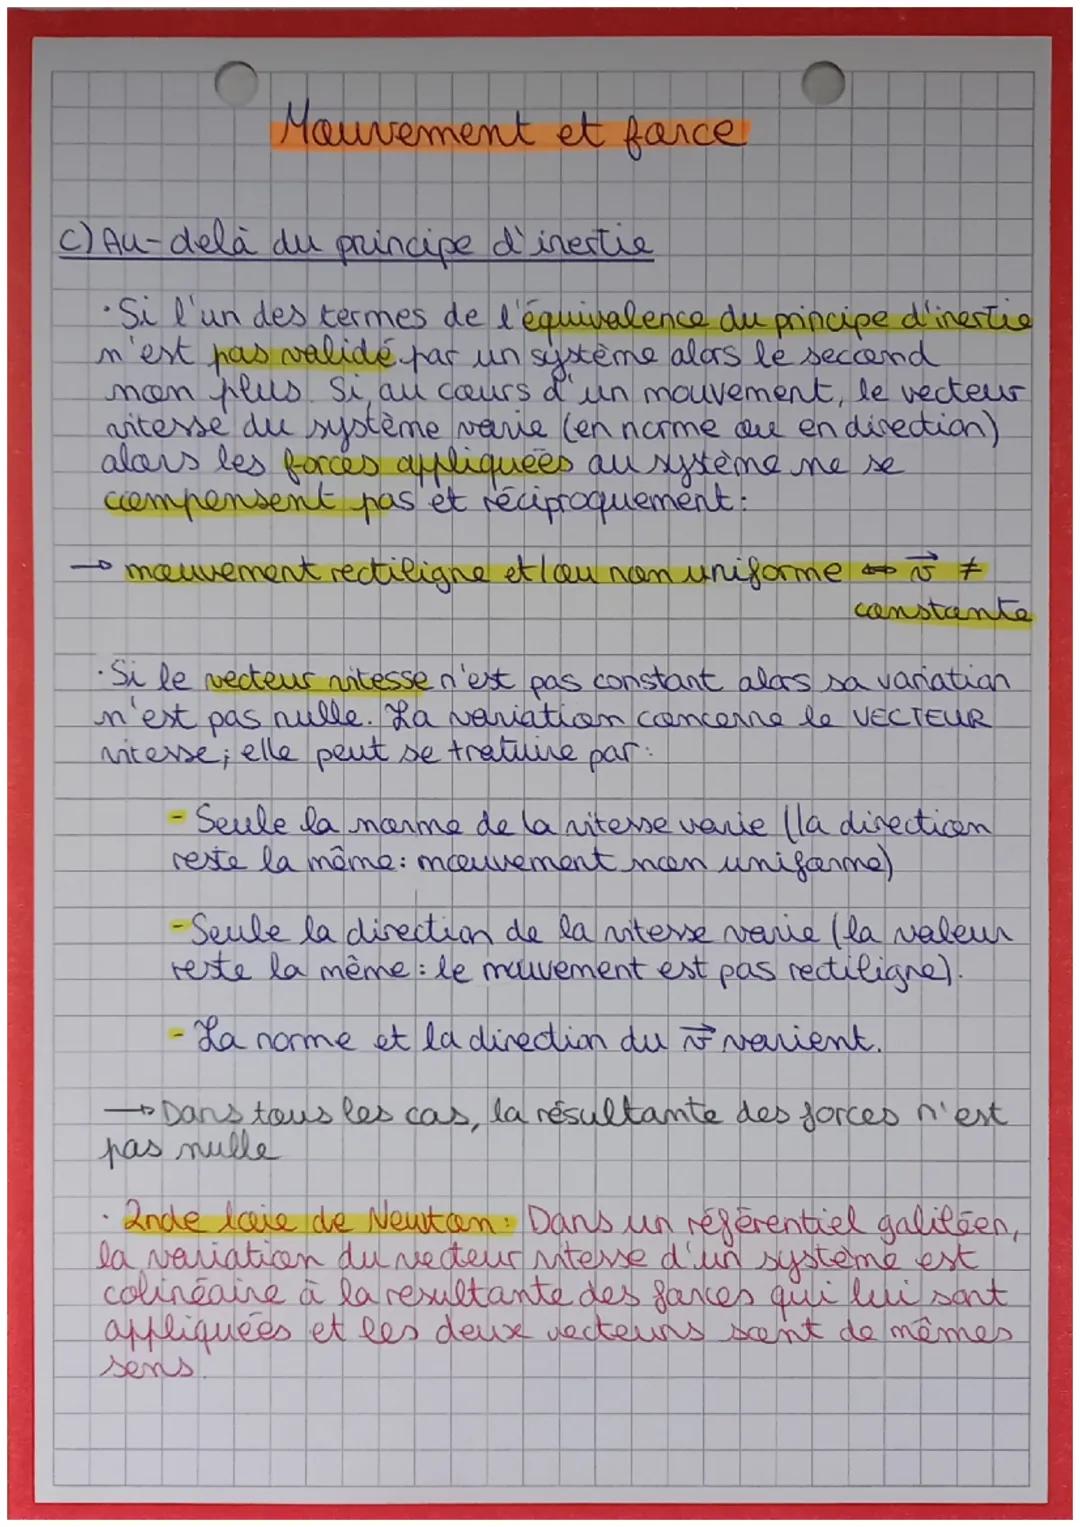 Mouvement et force
c) Au-delà du principe d'inertie
· Si l'un des termes de l'équivalence du principe d'inertie
n'est pas validé par un système alors le second
non plus. Si, au cours d'un mouvement, le vecteur
vitesse du système varie (en norme ou en direction)
alors les forces appliquées au système ne se
compensent pas et réciproquement :
→ mouvement rectiligne et/ou non uniforme ⇔ v⃗ ≠
constante
· Si le vecteur vitesse n'est pas constant alors sa variation
n'est pas nulle. La variation concerne le VECTEUR
vitesse ; elle peut se tratuire par :
- Seule la norme de la vitesse varie (la direction
reste la même : mouvement non uniforme)
- Seule la direction de la vitesse varie (la valeur
reste la même : le mouvement est pas rectiligne).
- La norme et la direction du v⃗ varient.
→ Dans tous les cas, la résultante des forces n'est
pas nulle
· 2nde loie de Newton : Dans un référentiel galiléen,
la variation du vecteur vitesse d'un système est
colinéaire à la resultante des forces qui lui sont
appliquées et les deux vecteurs sont de mêmes
sens.